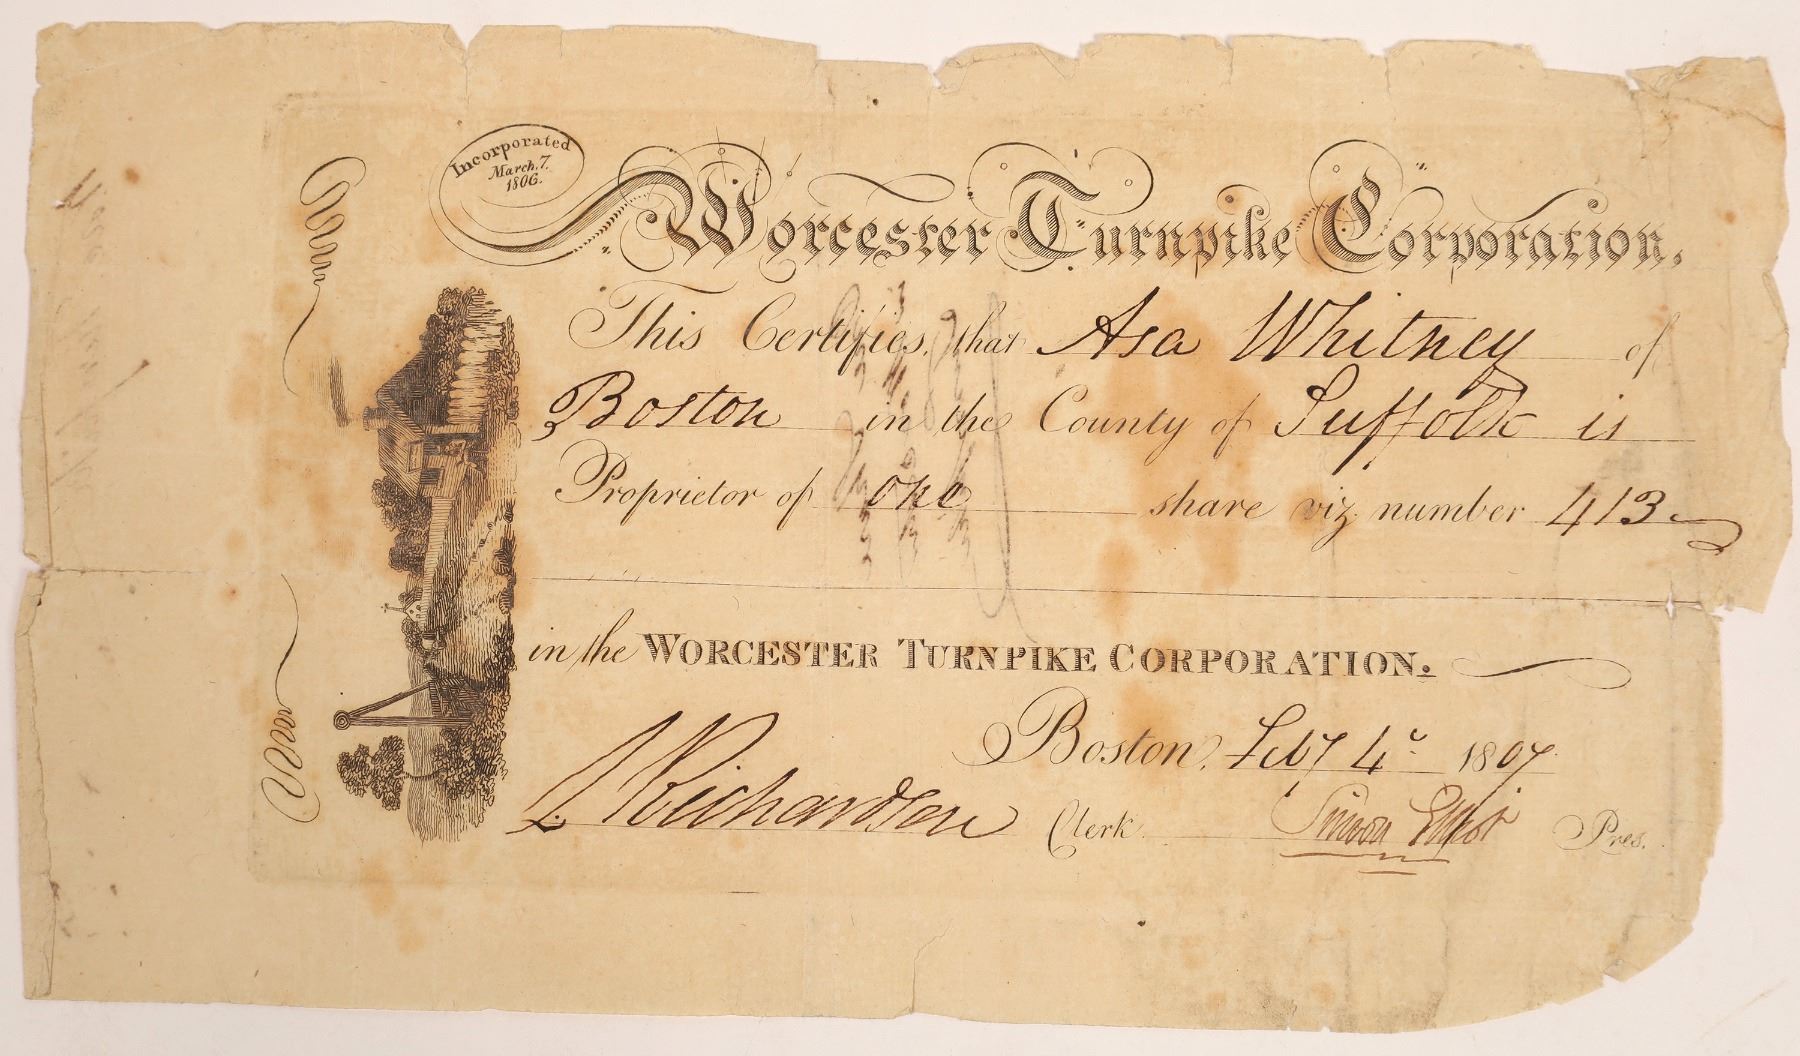 Incorporated
March, 7.
1806.
Worcester Turnpike Corporation.
This Certifies, that Asa Whitney of
Boston in the County of Suffolk is
Proprietor of one share viz. number 413
in the WORCESTER TURNPIKE CORPORATION.
Boston, Feby 4th 1807
J. Richardson Clerk Simon Elliot Pres.